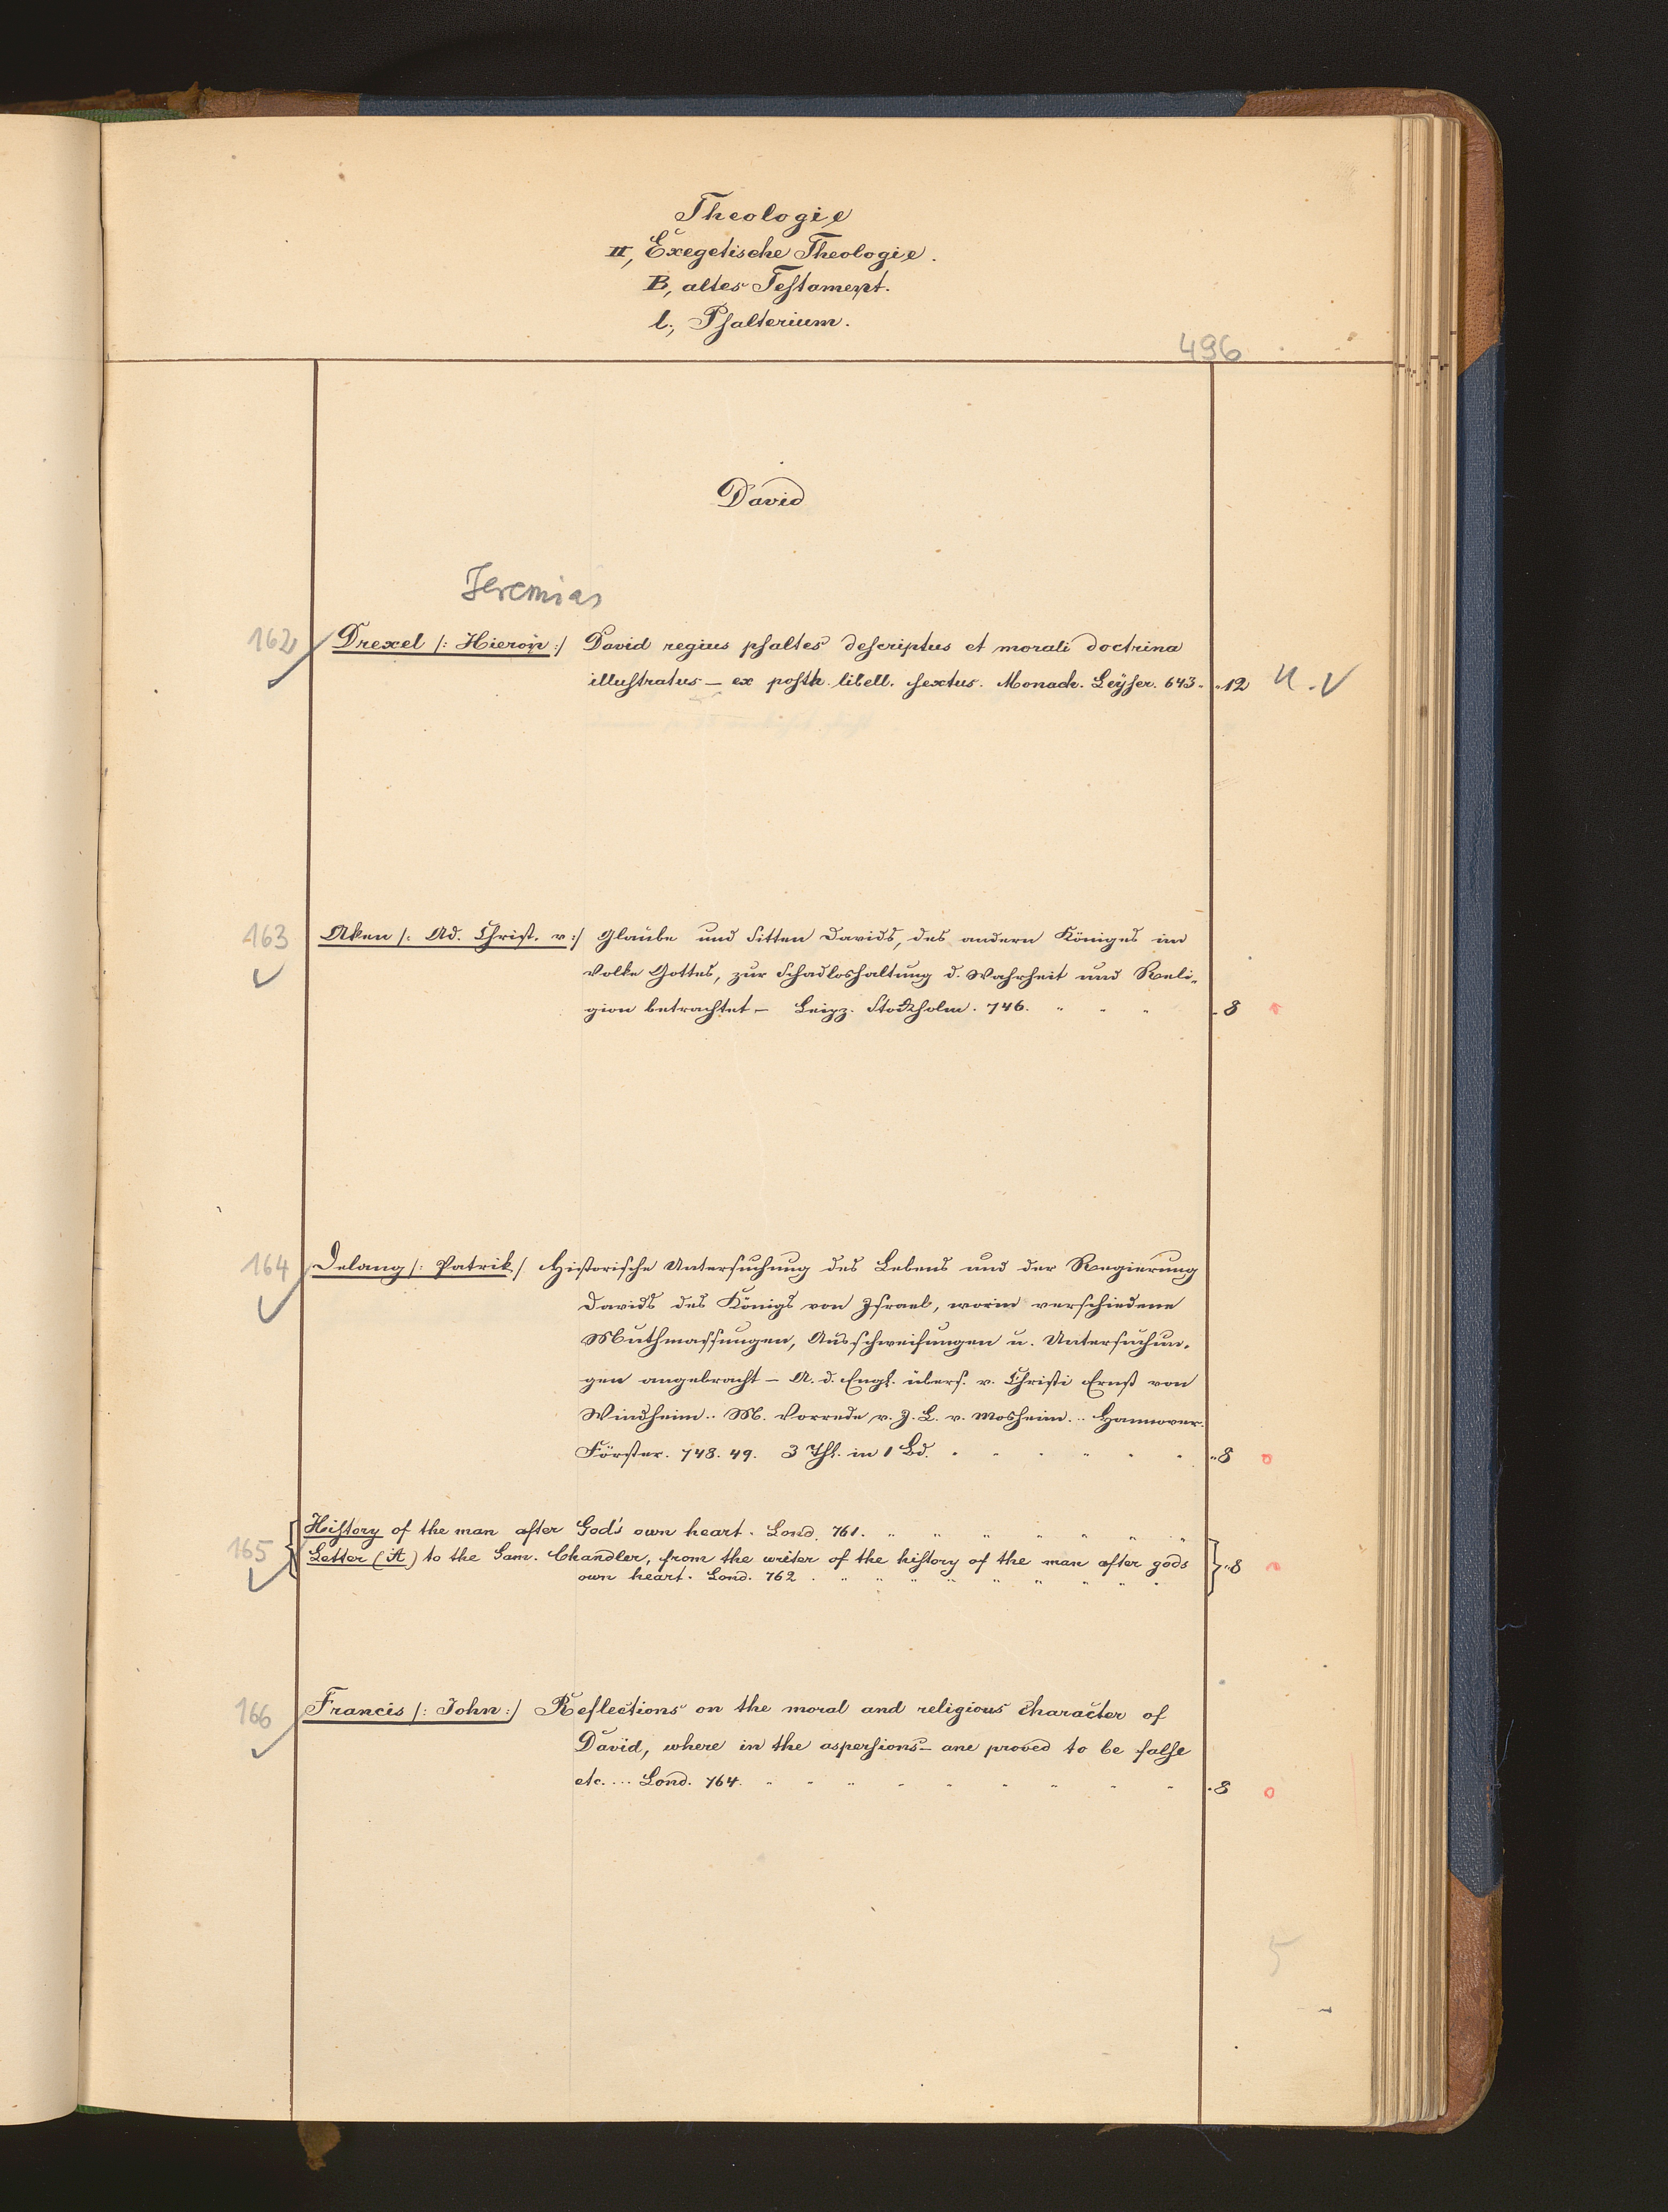 Theologie
II, Exegetische Theologie.
B, altes Testament.
l., Psalterium.
496
David
Jeremias
162 Drexel /: Hieron :/ David regius psaltes descriptus et morali doctrina
illustratus — ex posth. libell. sextus. Monach. Leyser. 643. " 12 U.V
163 Aken /: Ad. Christ. v :/ Glaube und Sitten Davids, des andern Königes im
Volke Gottes, zur Schadloshaltung d. Wahrheit und Reli-
gion betrachtet — Leipz. Stockholm. 746. " " " 8
164 Delany /: Patrik / Historische Untersuchung des Lebens und der Regierung
Davids des Königs von Israel, worin verschiedene
Muthmassungen, Ausschweifungen u. Untersuchun-
gen angebracht — A. d. Engl. übers. v. Christi Ernst von
Windheim .. M. Vorrede v. J. L. v. Mosheim ... Hannover.
Förster. 748. 49. 3 Thl. in 1 Bd. " " " " " " 8 o
165 History of the man after God's own heart. Lond. 761. " " " " " " "
Letter (A) to the Sam. Chandler, from the writer of the history of the man after gods } " 8
own heart. Lond. 762 . " " " " " " " "
166 Francis /: John :/ Reflections on the moral and religious character of
David, where in the aspersions — are proved to be false
etc. ... Lond. 764. " " " " " " " " " 8 o
5